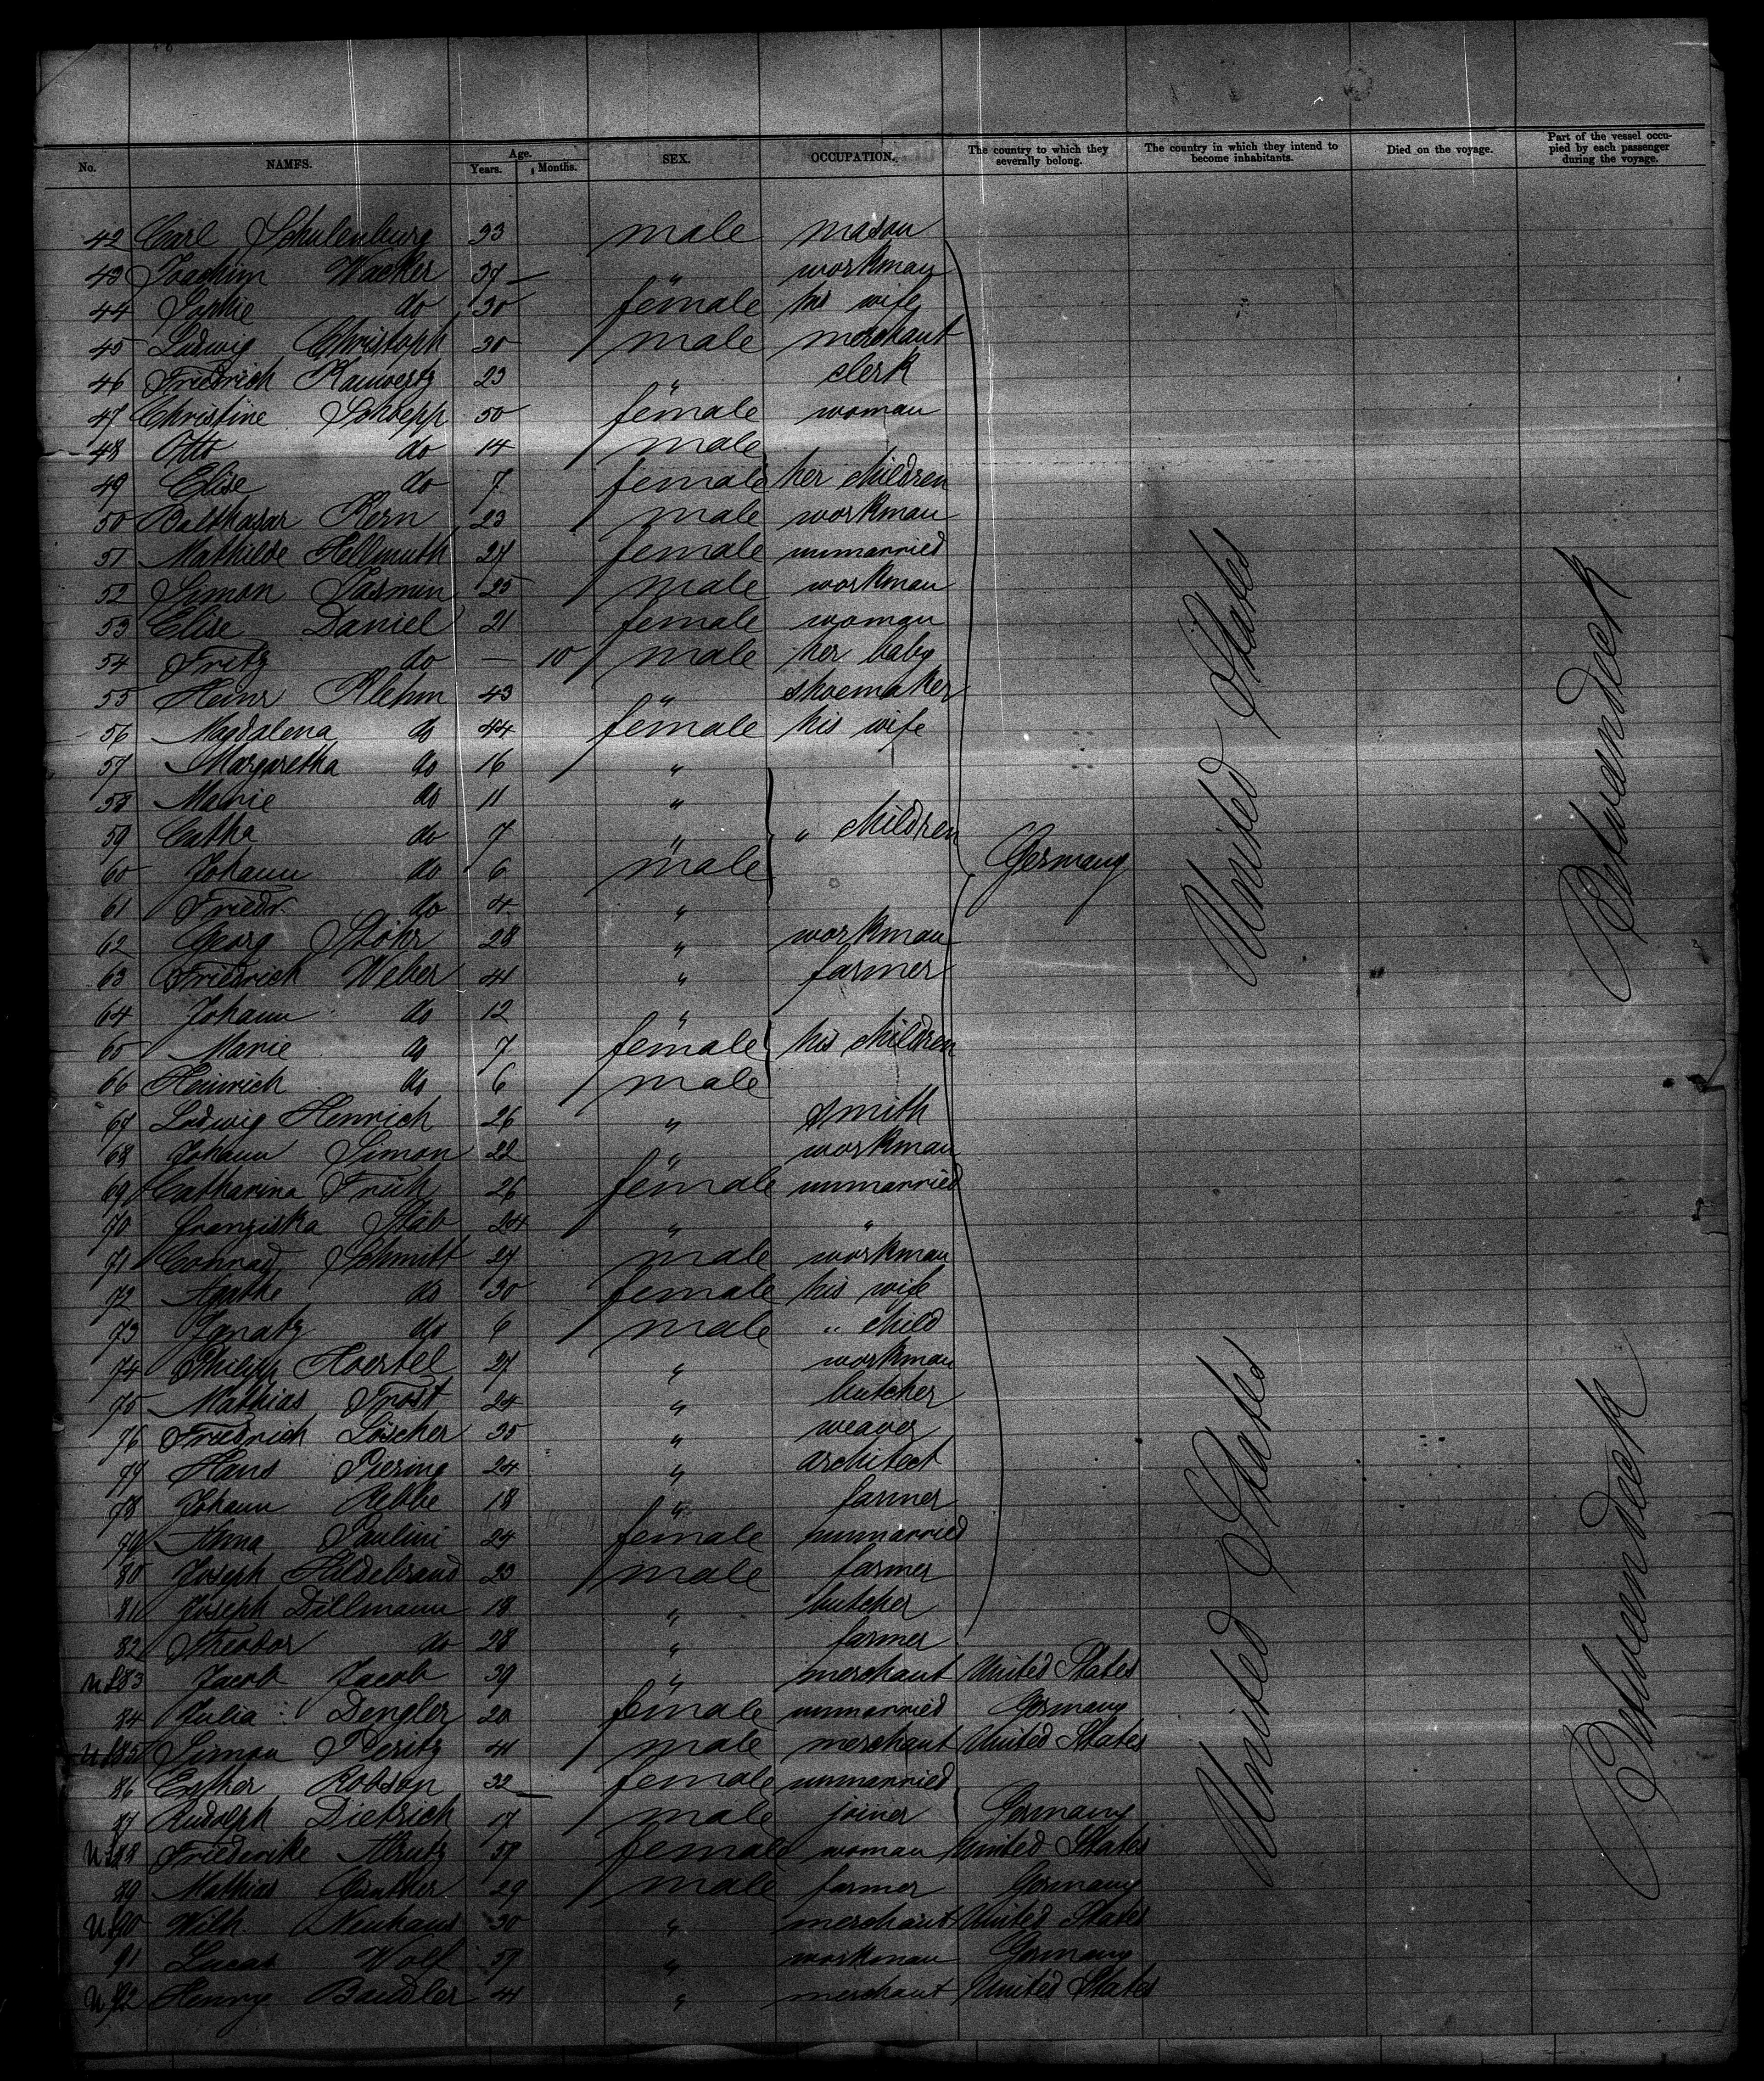 No. NAMES. Age. Years. Months. SEX. OCCUPATION. The country to which they severally belong. The country in which they intend to become inhabitants. Died on the voyage. Part of the vessel occupied by each passenger during the voyage.
42 Carl Schulenburg 33 male mason
43 Joachim Wacker 37 " workman
44 Sophie do 30 female his wife
45 Ludwig Christoph 30 male merchant
46 Friedrich 23 " clerk
47 Christine Schoepp 50 female woman
48 Otto do 14 male
49 Elise do 7 female her children
50 Balthasar Kern 23 male workman
51 Mathilde Hellmuth 27 female unmarried
52 Simon Jasmin 25 male workman
53 Elise Daniel 21 female woman
54 Fritz do — 10 male her baby
55 Heinr Klehm 43 " shoemaker
56 Magdalena do 44 female his wife
57 Margaretha do 16 "
58 Marie do 11 "
59 Catha do 7 " " children
60 Johann do 6 male Germany United States Betweendeck
61 Friedr. do 4 "
62 Georg Stöhr 28 " workman
63 Friedrich Weber 41 " farmer
64 Johann do 12 "
65 Marie do 7 female his children
66 Heinrich do 6 male
67 Ludwig Henrich 26 " smith
68 Johann Simon 22 " workman
69 Catharina Früh 26 female unmarried
70 Franziska Stab 24 " "
71 Conrad Schmitt 27 male workman
72 Agathe do 30 female his wife
73 Ignatz do 6 male " child
74 Philipp Hoertel 27 " workman
75 Mathias Frost 24 " butcher
76 Friedrich Löscher 35 " weaver
77 Hans Piering 24 " architect
78 Johann Rebbe 18 " farmer
79 Anna Paulini 24 female unmarried
80 Joseph Hildebrand 23 male farmer
81 Joseph Dillmann 18 " butcher
82 Theodor do 28 " farmer
US 83 Jacob Jacob 39 " merchant United States
84 Julia Dengler 20 female unmarried Germany United States Betweendeck
US 85 Simon Peritz 41 male merchant United States
86 Esther Robson 32 female unmarried
87 Rudolph Dietrich 17 male joiner Germany
US 88 Friederike 57 female woman United States
89 Mathias Günther 29 male farmer Germany
US 90 Wilh Neuhaus 30 " merchant United States
91 Lucas Wolf 57 " workman Germany
US 92 Henry Bandler 41 " merchant United States